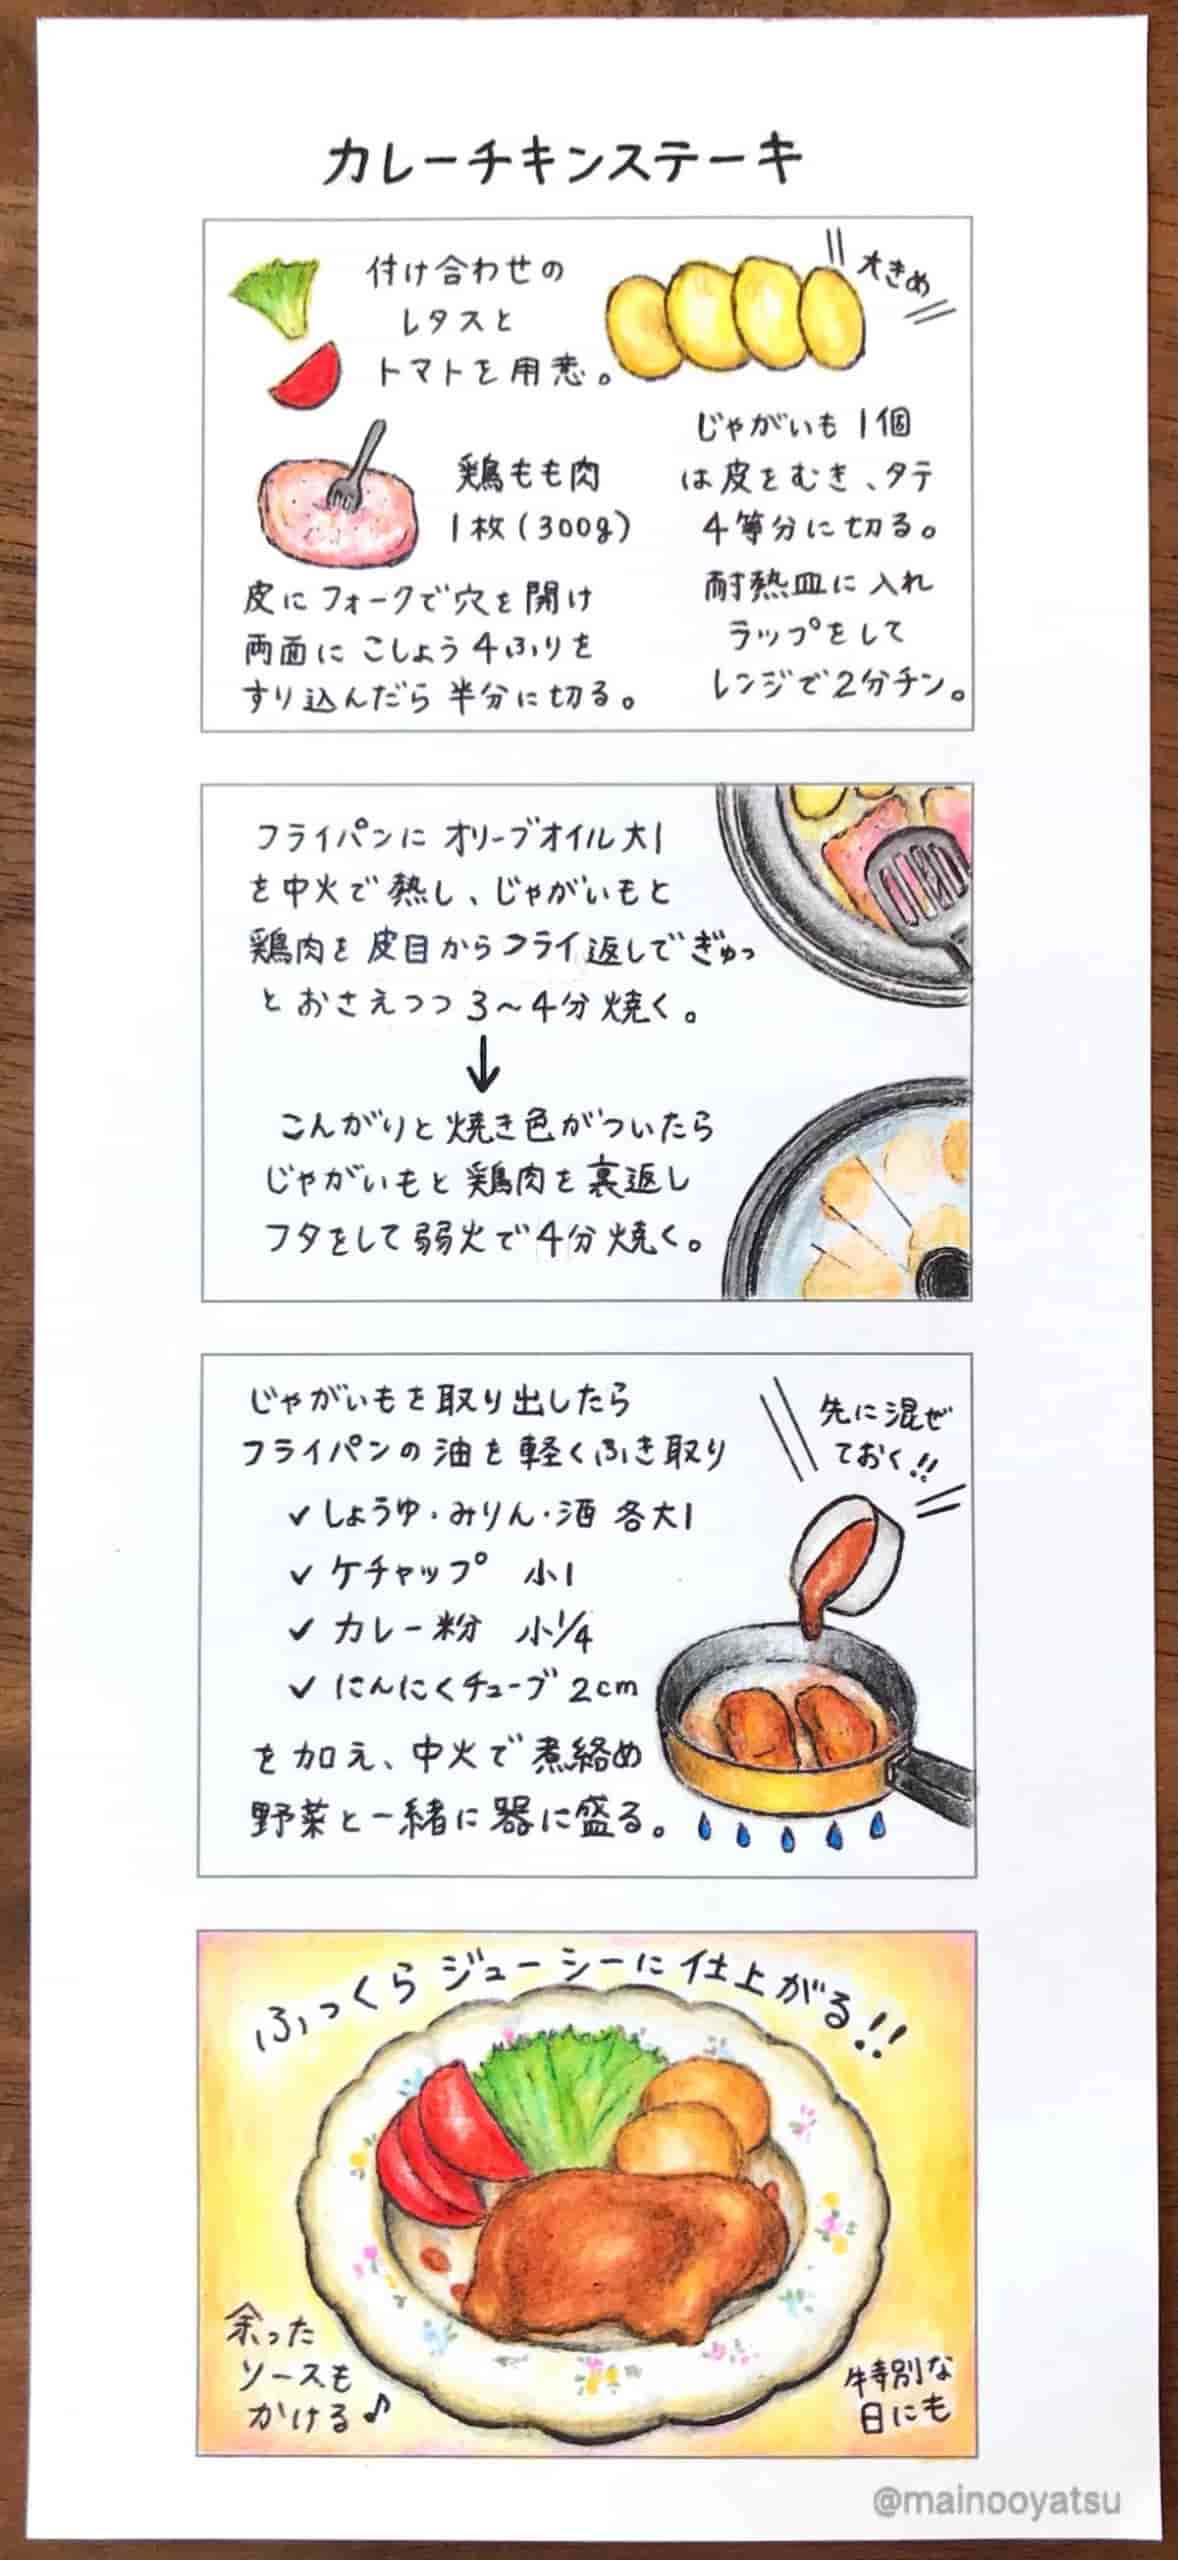 カレーチキンステーキ
付け合わせの
レタスと
トマトを用意。
大きめ
じゃがいも1個
は皮をむき、タテ
4等分に切る。
耐熱皿に入れ
ラップをして
レンジで2分チン。
鶏もも肉
1枚(300g)
皮にフォークで穴を開け
両面にこしょう4ふりを
すり込んだら半分に切る。
フライパンにオリーブオイル大1
を中火で熱し、じゃがいもと
鶏肉を皮目からフライ返しでぎゅっ
とおさえつつ3〜4分焼く。
↓
こんがりと焼き色がついたら
じゃがいもと鶏肉を裏返し
フタをして弱火で4分焼く。
じゃがいもを取り出したら
フライパンの油を軽くふき取り
✓しょうゆ・みりん・酒 各大1
✓ケチャップ 小1
✓カレー粉 小1/4
✓にんにくチューブ2cm
を加え、中火で煮絡め
野菜と一緒に器に盛る。
先に混ぜ
ておく!!
ふっくらジューシーに仕上がる!!
余った
ソースも
かける♪
特別な
日にも
@mainooyatsu